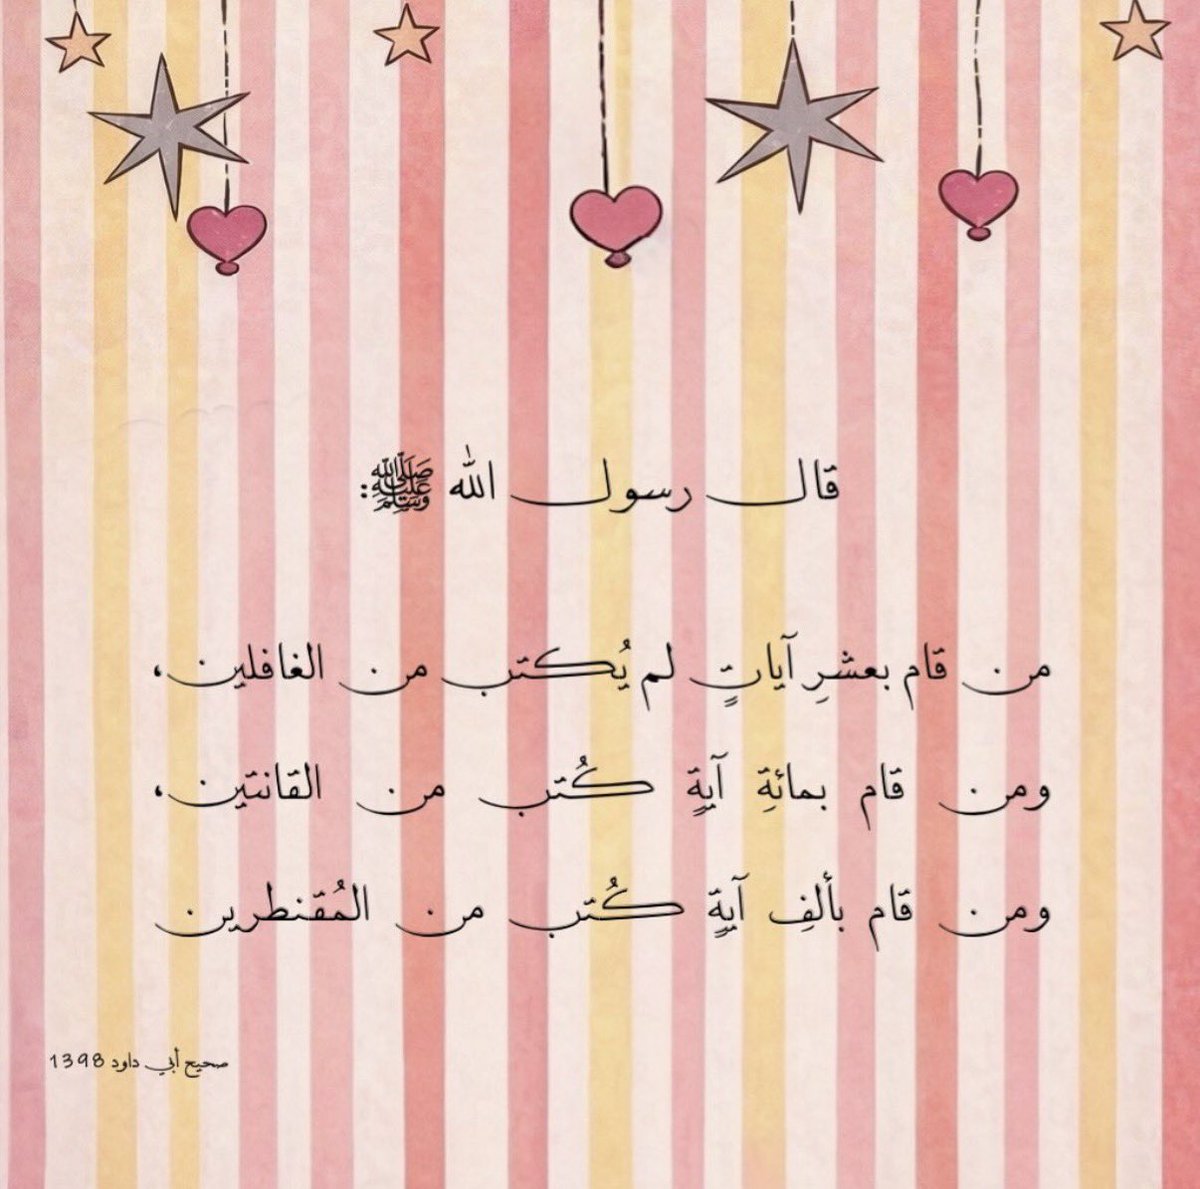 قال رسول الله ﷺ:
من قام بعشرِ آياتٍ لم يُكتب من الغافلين،
ومن قام بمائةِ آيةٍ كُتب من القانتين،
ومن قام بألفِ آيةٍ كُتب من المُقنطرين
صحيح أبي داود 1398